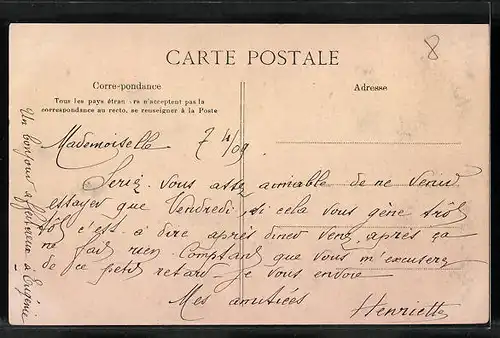 CARTE POSTALE
8
Corre-pondance
Adresse
Tous les pays étran rs n'acceptent pas la
correspondance au recto, se renseigner à la Poste
Mademoiselle 7/4/09
Seriez-vous assez aimable de ne venir
essayer que Vendredi, si cela vous gêne trot
tôt c'est-à dire après diner venez, après ça
ne fait rien. Comptant que vous m'excuserez
de ce petit retard - je vous envoie
Mes amitiées
Henriette
Un bonjour à Eugénie